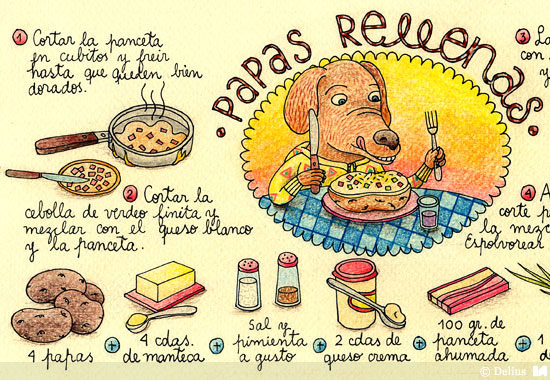 PAPAS RELLENAS
1 Cortar la panceta
en cubitos y freir
hasta que queden bien
dorados.
2 Cortar la
cebolla de verdeo finita y
mezclar con el queso blanco
y la panceta.
3 La
con
y
4 A
corte p
la mezc
Espolvorear
4 papas
+
4 cdas.
de manteca
+
Sal y
pimienta
a gusto
+
2 cdas de
queso crema
+
100 gr. de
panceta
ahumada
+
1
de
© Delius